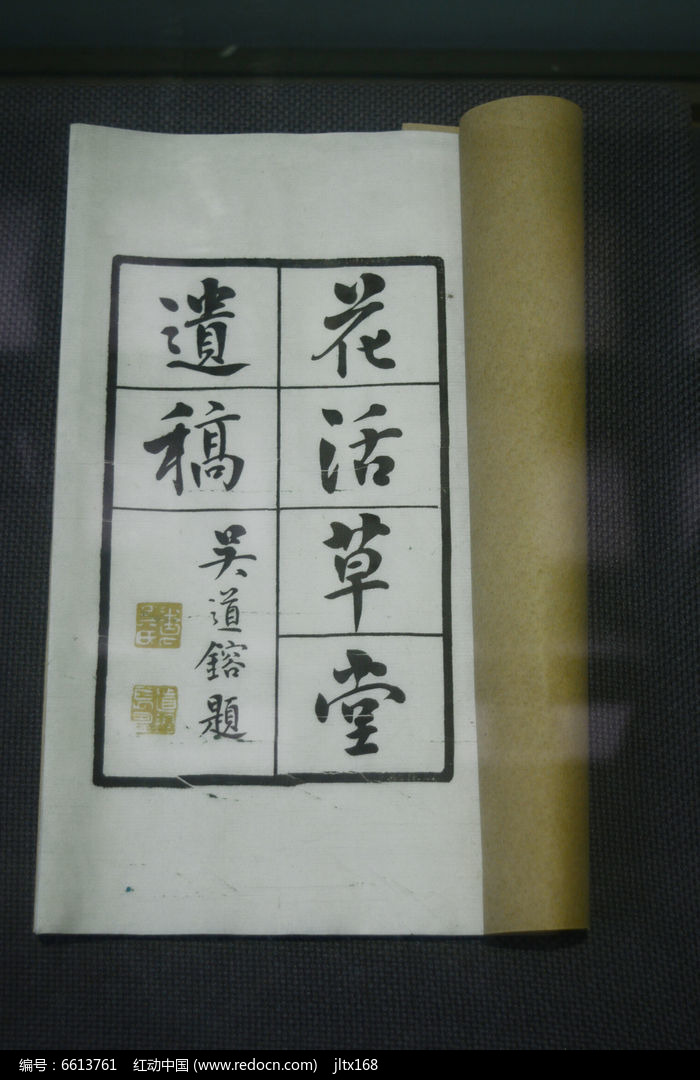 花活草堂
遺稿
吳道鎔題
编号：6613761 红动中国 (www.redocn.com) jltx168